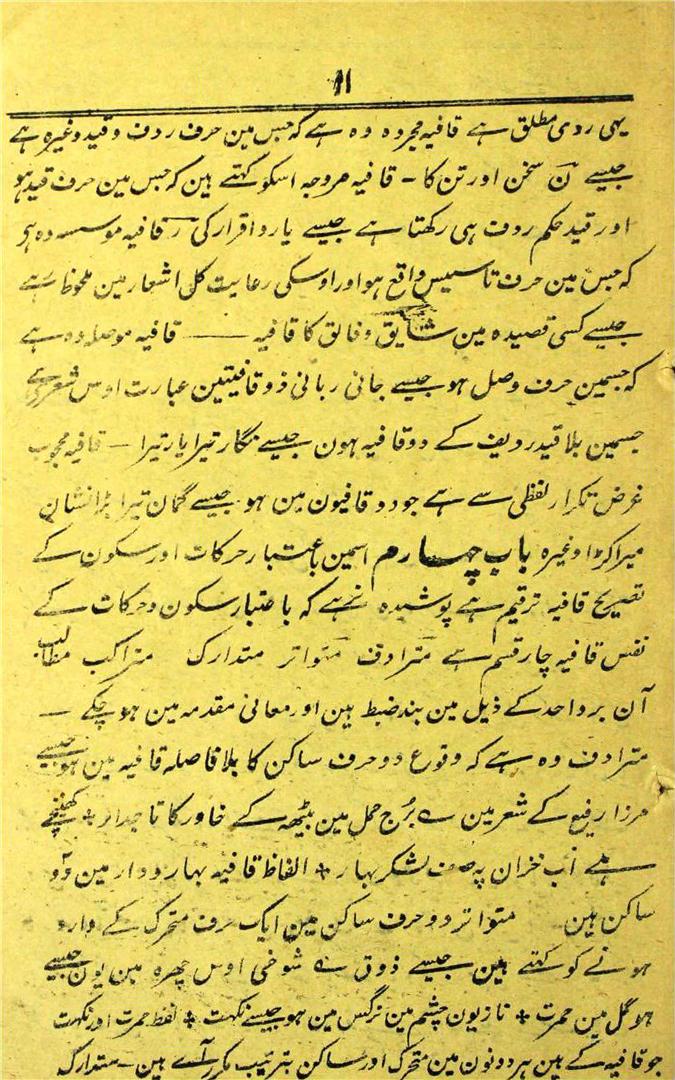 ۱۱
یہی ردی مطلق ہے قافیہ مجردہ وہ ہے کہ جس مین حرف ردف وقید وغیرہ ہے
جیسے ن سخن اور تن کا - قافیہ مروجہ اسکو کہتے ہین کہ جس مین حرف قید ہو
اور قید حکم ردف ہی رکھتا ہے جیسے یار و اقرار کی ر قافیہ موسسہ وہ ہو
کہ جس مین حرف تاسیس واقع ہو اور اوسکی رعایت کل اشعار مین ملحوظ رہے
جیسے کسی قصیدہ مین شایق و فایق کا قافیہ — قافیہ موصلہ وہ ہے
کہ جسمین حرف وصل ہو جیسے جانی ربانی ذوقافیتین عبارت اوس شعر سے
جسمین بلاقید ردیف کے دو قافیہ ہون جیسے نگار تیرا یار تیرا - قافیہ محجوب
غرض تکرار لفظی سے ہے جو دو قافیون مین ہو جیسے گمان تیرا بڑا نشان
میرا کڑا وغیرہ باب چہارم اسمین باعتبار حرکات اور سکون کے
تصریح قافیہ ترقیم ہے پوشیدہ نرہے کہ باعتبار سکون و حرکات کے
نفس قافیہ چار قسم ہے مترادف متواتر متدارک متراکب مطالب
آن ہر واحد کے ذیل مین بند ضبط ہین اور معانی مقدمہ مین ہو چکے —
مترادف وہ ہے کہ وقوع دو حرف ساکن کا بلا فاصلہ قافیہ مین ہو جیسے
مرزا رفیع کے شعر مین ے بُرج حمل مین بیٹھہ کے خاور کا تاجدار + کھینچے
ہے اب خزان پہ صف لشکر بہار + الفاظ قافیہ بہار و دار مین دو
ساکن ہین متواتر دو حرف ساکن مین ایک حرف متحرک کے وارد
ہونے کو کہتے ہین جیسے ذوق ے شوخی اوس چہرہ مین یون جیسے
ہو گل مین حمرت + ناز یون چشم مین نرگس مین ہو جیسے نکہت + لفظ حمرت اور نکہت
جو قافیہ کے ہین ہر دونون مین متحرک اور ساکن بترتیب مکرر آے ہین - متدارک